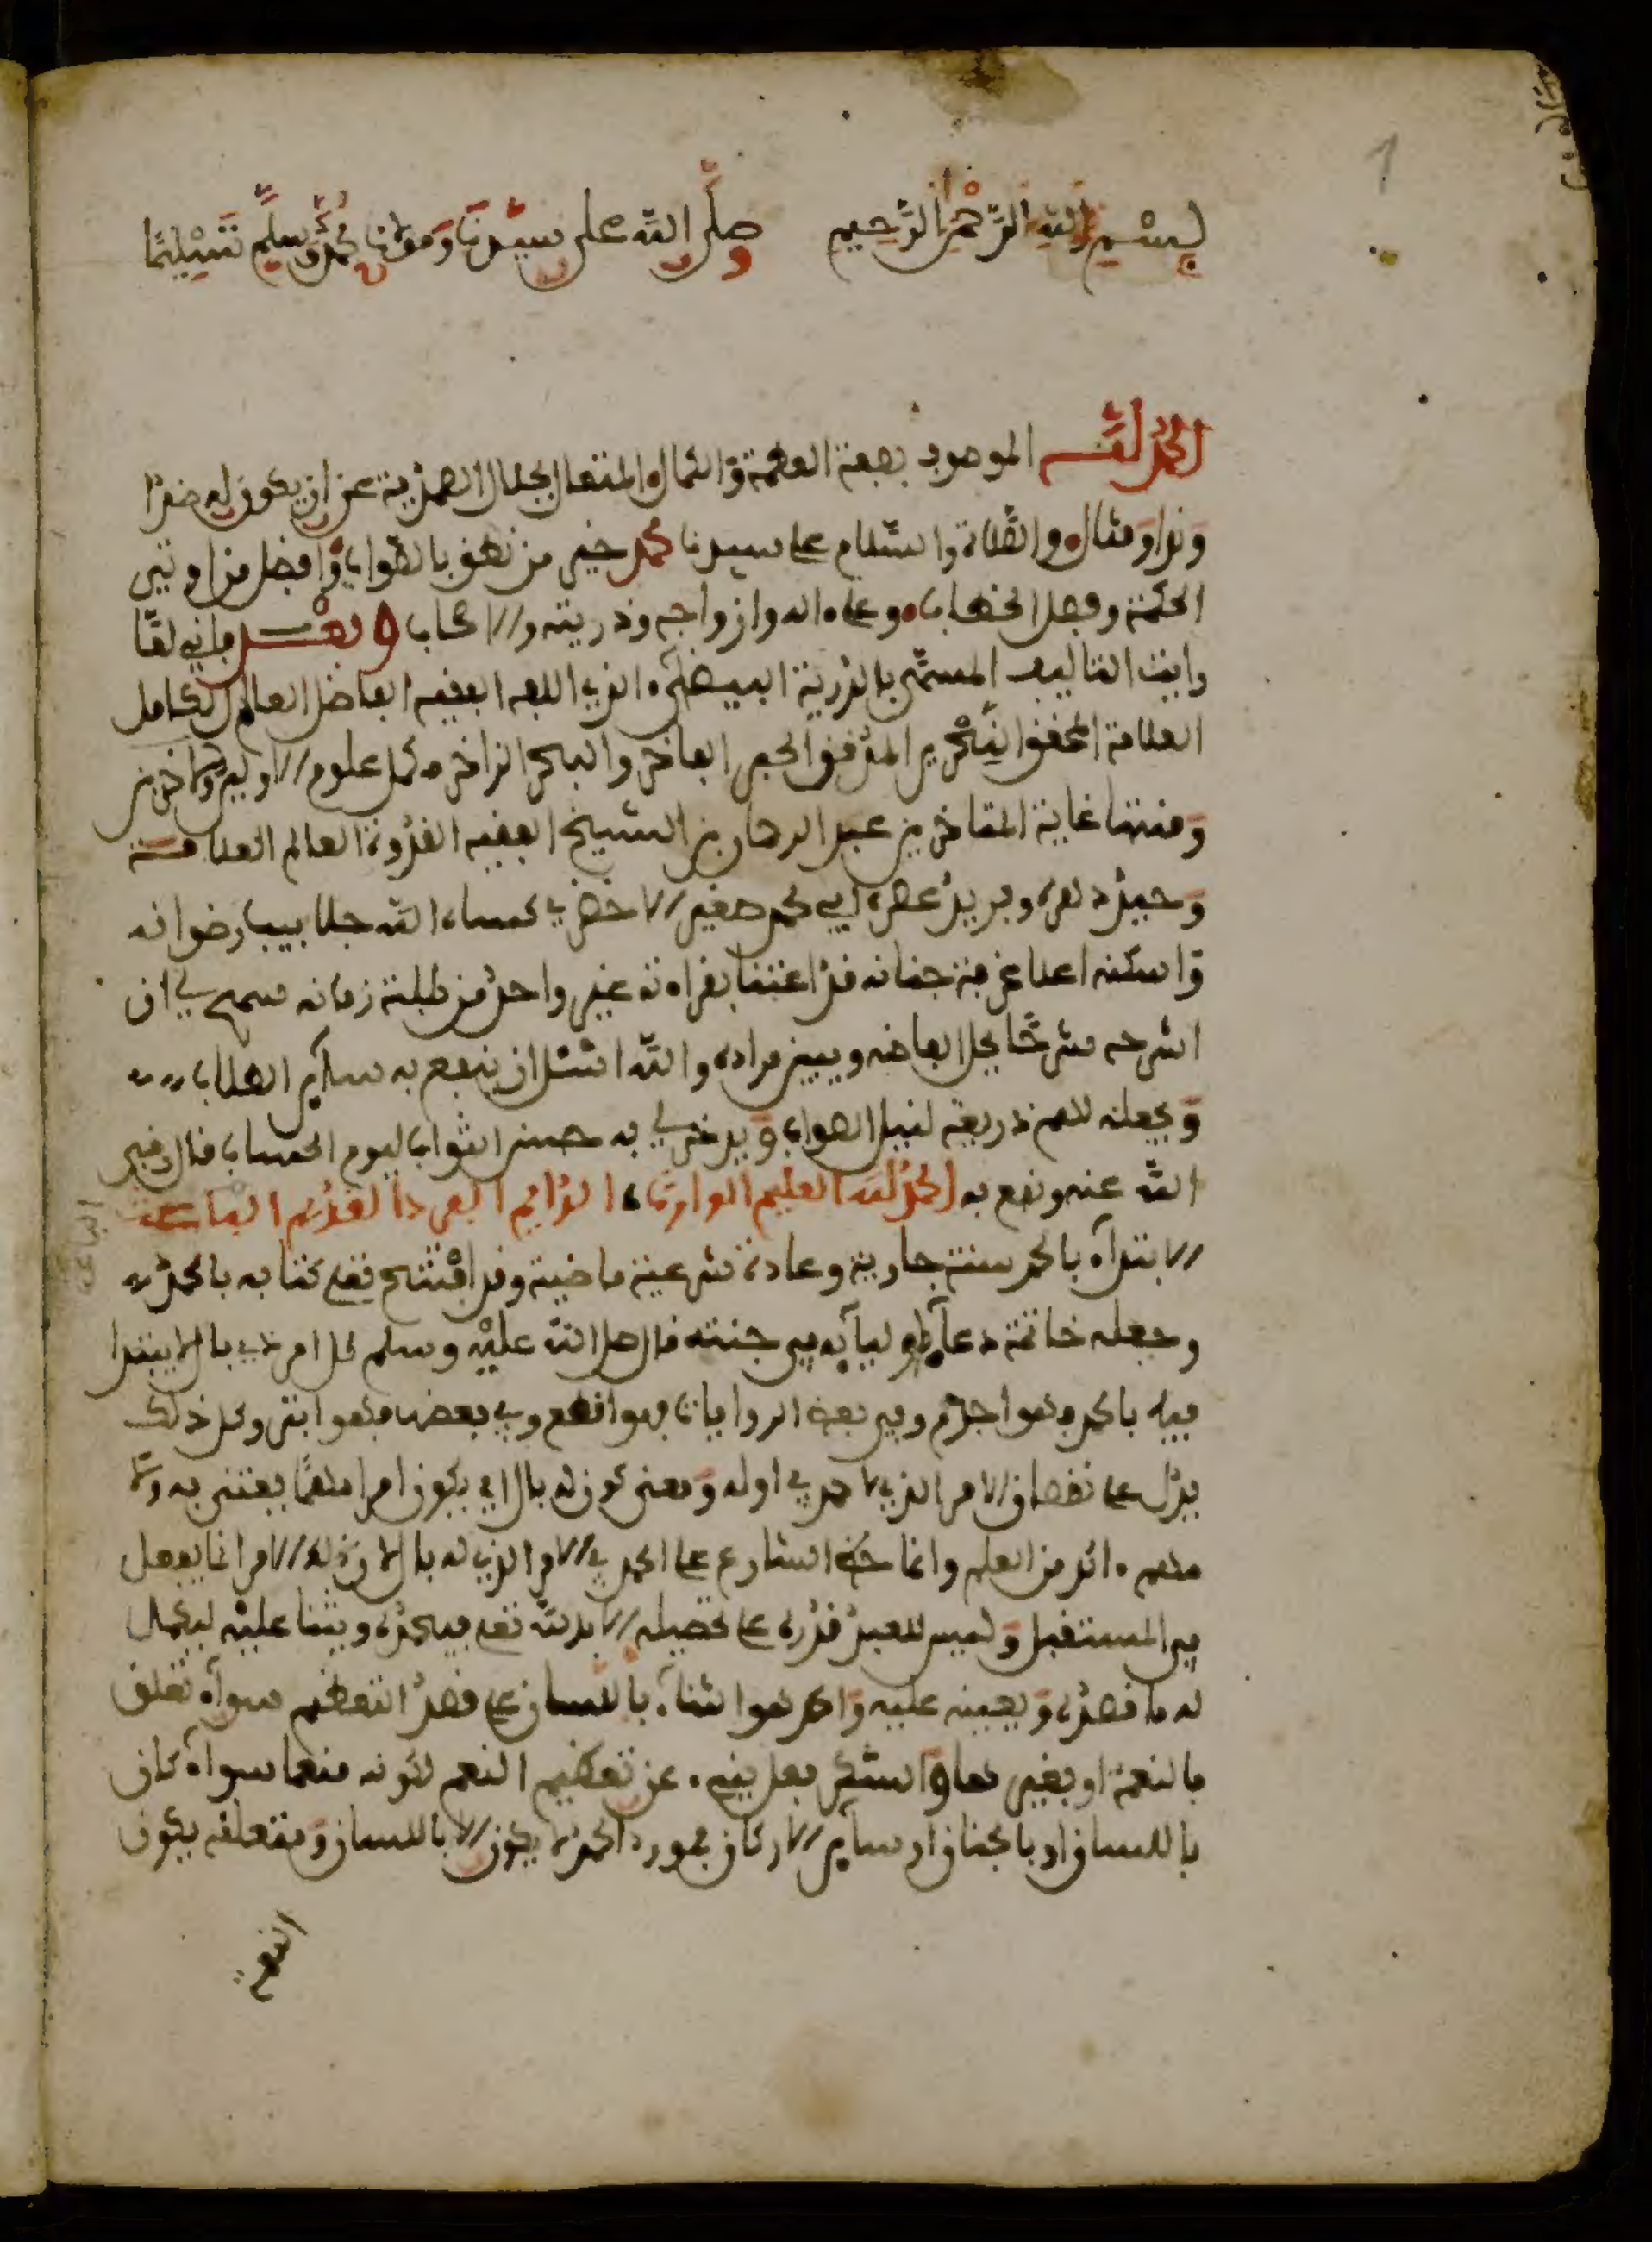 1
بسم الله الرحمن الرحيم وصلى الله على سيدنا ومولانا محمد وسلم تسليما
الحمد لله الموصوف بصفة العظمة والكمال المتعال بجلال الصمدية عن ان يكون له ضدا
وندا ومثال والصلاة والسلام على سيدنا محمد خير من نطق بالصواب وافضل من اوتي
الحكمة وفصل الخطاب وعلى اله وازواجه وذريته والاصحاب وبعد فاني لما
رايت التاليف المسمى بالدرة البيضاء الذي الفه الفقيه الفاضل العالم الكامل
العلامة المحقق النحرير المدقق الحبر الفاخر والبحر الزاخر علوم الاولين والاخرين
ومنتها غاية المفاخر بن عبد الرحمان بن الشيخ الفقيه القدوة العالم العلامة
وحيد دهره وفريد عصره ابي محمد صغير الاخضري كساه الله جلابيب رضوانه
واسكنه اعلا غرفة جنانه قد اعتنا بقراءته غير واحد من طلبة زمانه سمح لي ان
اشرحه شرحا يحل الفاضه ويبين مراده والله اسئل ان ينفع به ساير الطلاب
ويجعله لهم ذريعة لنيل الصواب ويدخر لي به حسن الثواب ليوم الحساب قال رضي
الله عنه ونفع به الحمد لله العليم الوارث الدايم الفرد القديم الباعث
الباعث
الابتداء بالحمد سنة جارية وعادة شرعية ماضية وقد افتتح تعلى كتابه بالحمد
وجعله خاتمة دعاء اوليايه في جنته قال صلى الله عليه وسلم كل امر ذي بال لا يبتدا
فيه بالحمد فهوا اجذم وفي بعض الروايات فهوا قطع وفي بعضها فهوا ابتر وكل ذلك
يدل على نقصان الامر الذي لا حمد في اوله ومعنى كونه ذا بال اي يكون امرا مهما يعتنى به ولا
مهم اكد من العلم وانما حض الشارع على الحمد في الامر الذي له بال لان ذلك الامر انما يفعل
في المستقبل وليس للعبد قدرة على تحصيله الا بالله تعلى فيحمده ويثنا عليه ليكمل
له ما قصده ويعينه عليه والحمد هوا الثناء باللسان على قصد التعظيم سواء تعلق
بالنعمة او بغيرها والشكر فعل ينبيء عن تعظيم المنعم لكونه منعما سواء كان
باللسان او بالجنان او ساير الاركان فمورد الحمد لا يكون الا باللسان ومتعلقه يكون
النعم